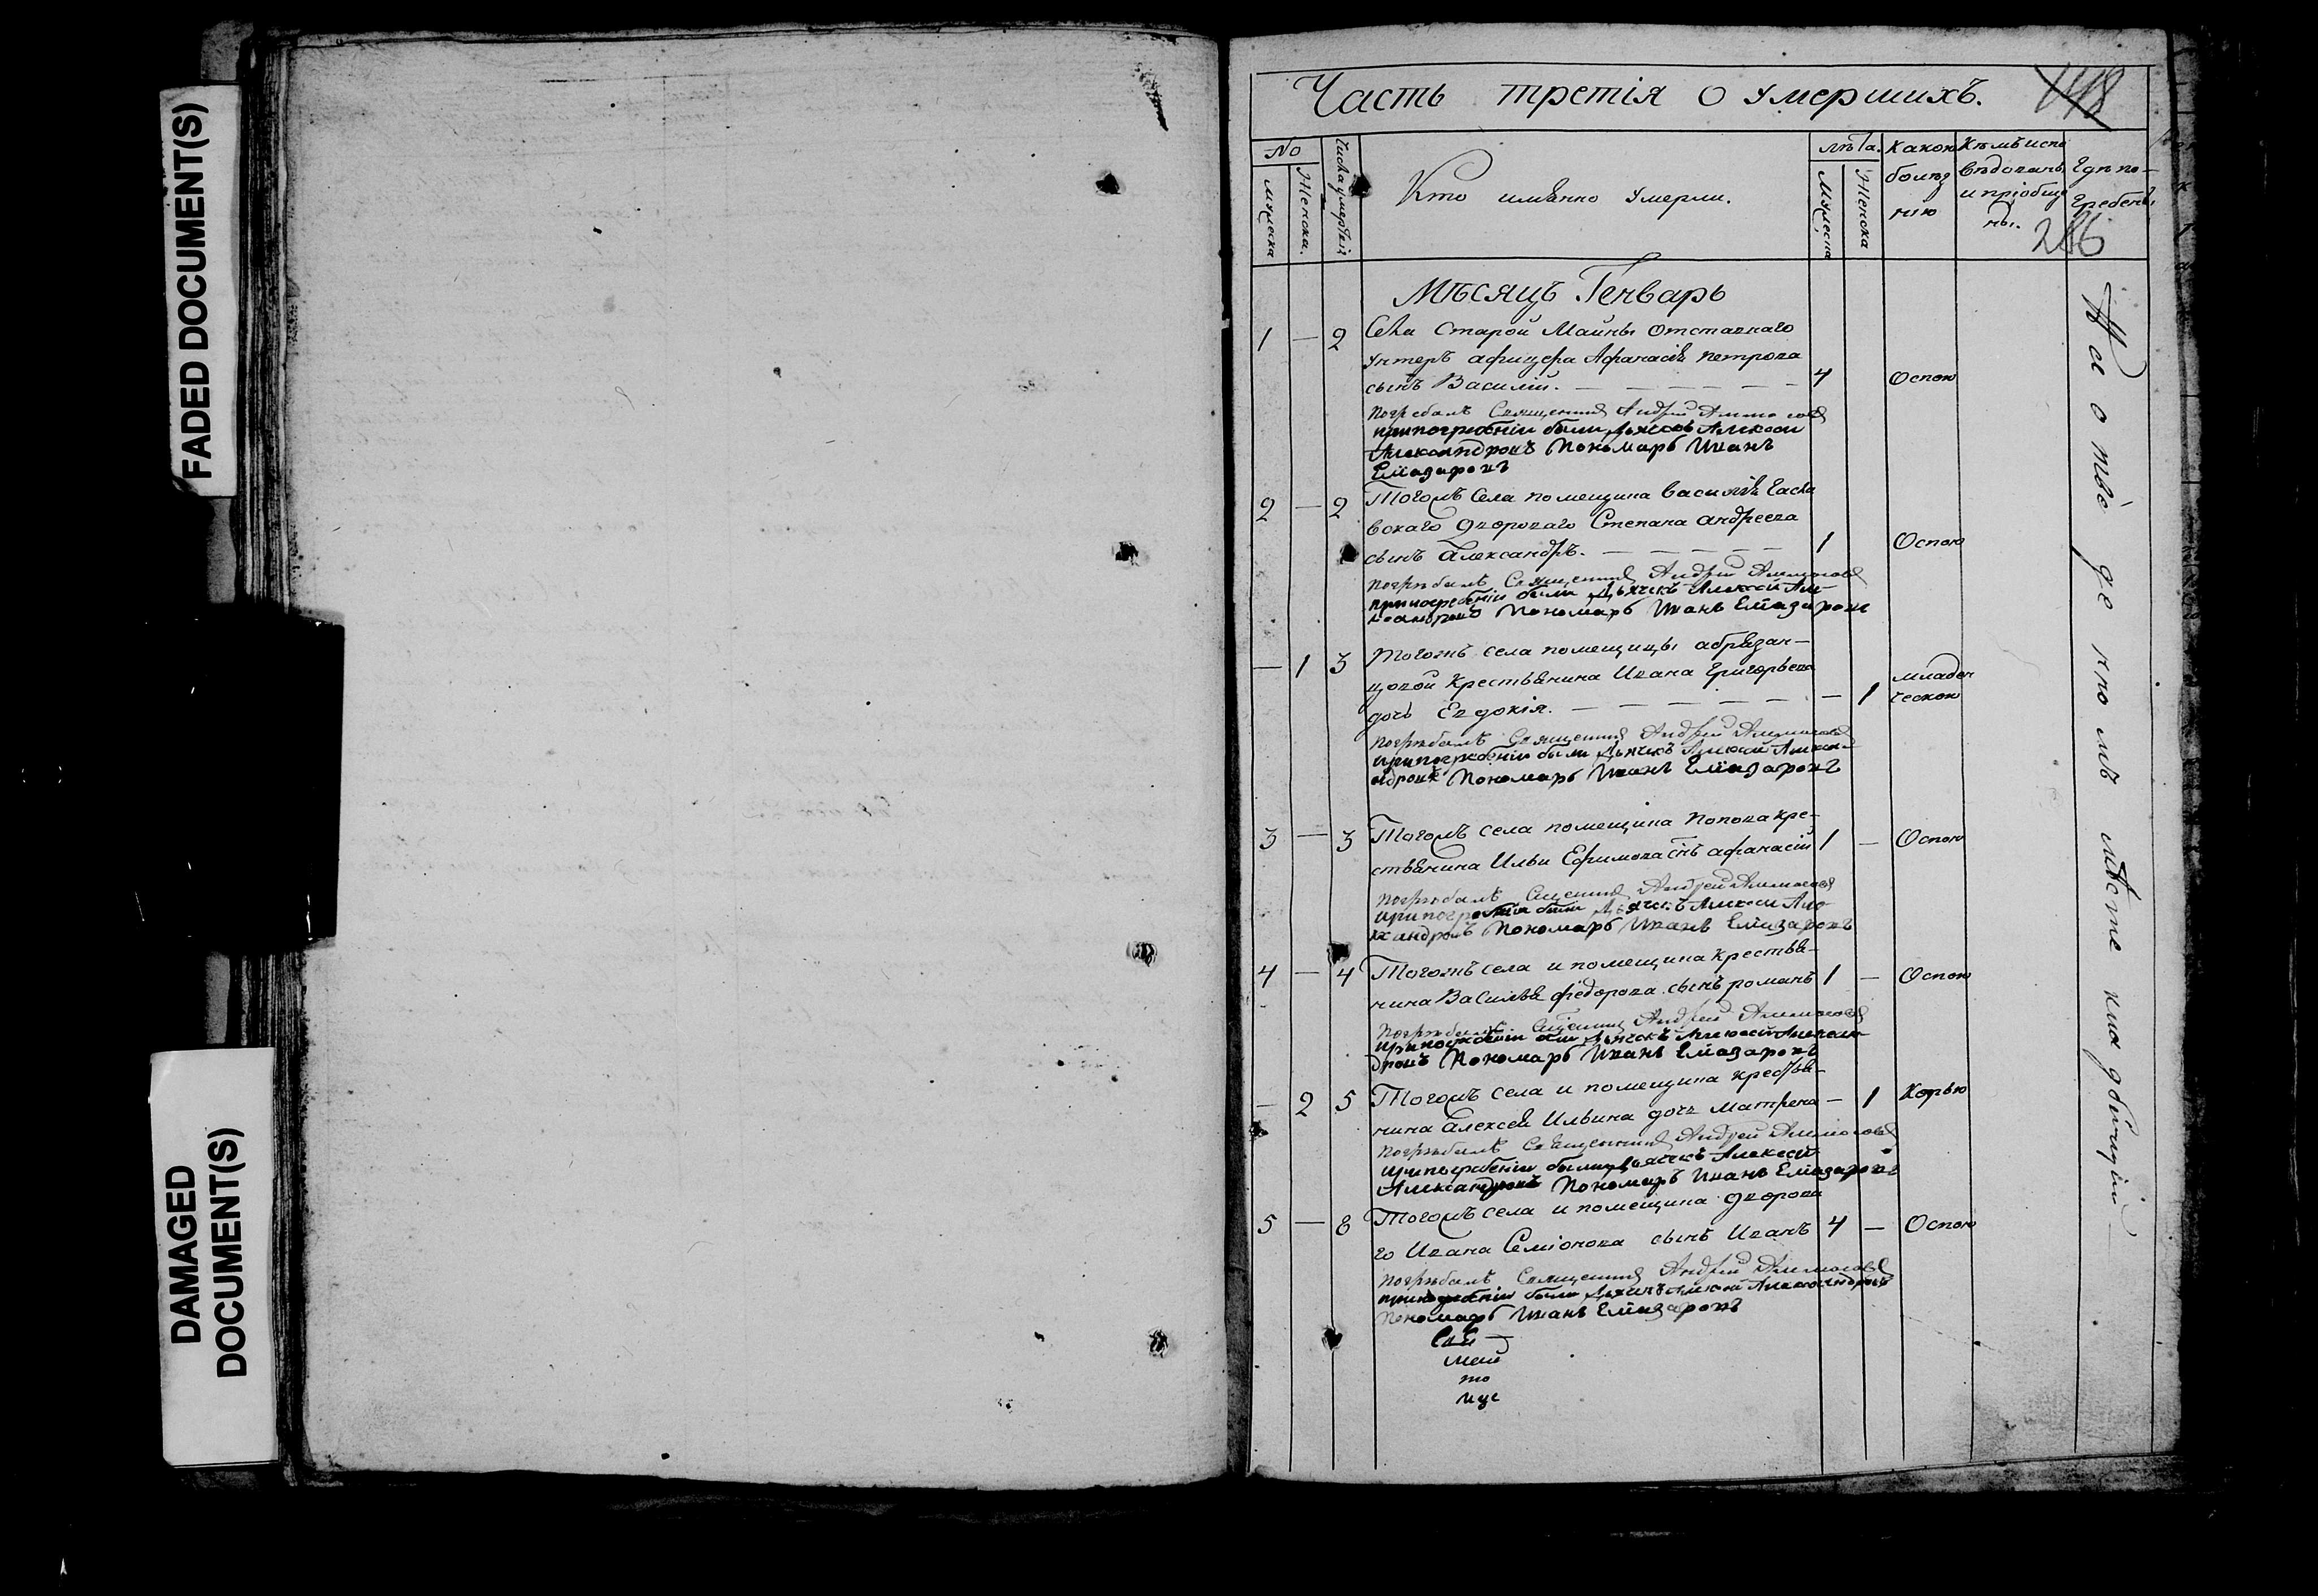 FADED DOCUMENT(S)
DAMAGED
DOCUMENT(S)
Часть третія о умершихъ.
148
№
Мужеска
Женска.
Числа умертвія
Кто имѣнно умерли.
лѣта.
Мужеска
Женска
Какою
болѣз
нію
Кѣмъ испо
вѣдованы
и пріобще
ны.
Где по-
гребены
286
Мѣсяцъ Генварь
1 — 2 Села Старой Майны отставнаго
унтеръ афицера Афанасія петрова
сынъ Василій. — — — — — — 4 Оспою
погребалъ Священникъ Андрей Аммосовъ
припогребеніи были Дьячекъ Алексей
Александровъ Пономарь Иванъ
Елиазаровъ
2 — 2 Тогожъ Села помещика василія
вскаго дворового Степана андреева
сынъ Александръ. — — — — — 1 Оспою
погрѣбалъ Священникъ Андрей Аммосовъ
припогребеніи были Дьячекъ Алексей Але-
ксандровъ Пономарь Иванъ Елиазаровъ
— 1 3 Тогожъ села помещицы абрѣзан-
цовой Крестьянина Ивана Григорьева
дочь Евдокія. — — — — — — — 1 младен
ческою
погрѣбалъ Священникъ Андрей Аммосовъ
припогребеніи были Дьячекъ Алексей Алекса-
ндровъ Пономарь Иванъ Елиазаровъ
3 — 3 Тогожъ села помещика попова кре-
стьянина Ильи Ефимова снъ афанасій 1 — Оспою
погрѣбалъ Сщенникъ Андрей Аммосовъ
припогребеніи были Дьячекъ Алексей Але-
ксандровъ Пономарь Иванъ Елиазаровъ
4 — 4 Тогожъ села и помещика крестья-
нина Василья федорова сынъ романъ 1 — Оспою
погрѣбалъ Сщенникъ Андрей Аммосовъ
припогребеніи были Дьячекъ Алексей Алексан-
дровъ Пономарь Иванъ Елиазаровъ
— 2 5 Тогожъ села и помещика крестья-
нина Алексея Ильина дочь матрена — 1 Корью
погрѣбалъ Священникъ Андрей Аммосовъ
припогребеніи были Дьячекъ Алексей
Александровъ Пономарь Иванъ Елиазаровъ
5 — 8 Тогожъ села и помещика дворова
го Ивана Семіонова сынъ Иванъ 4 — Оспою
погрѣбалъ Священникъ Андрей Аммосовъ
припогребеніи были Дьячекъ Алексей Александровъ
Пономарь Иванъ Елиазаровъ
мей
то
ице
кромѣ месте кладбищѣ